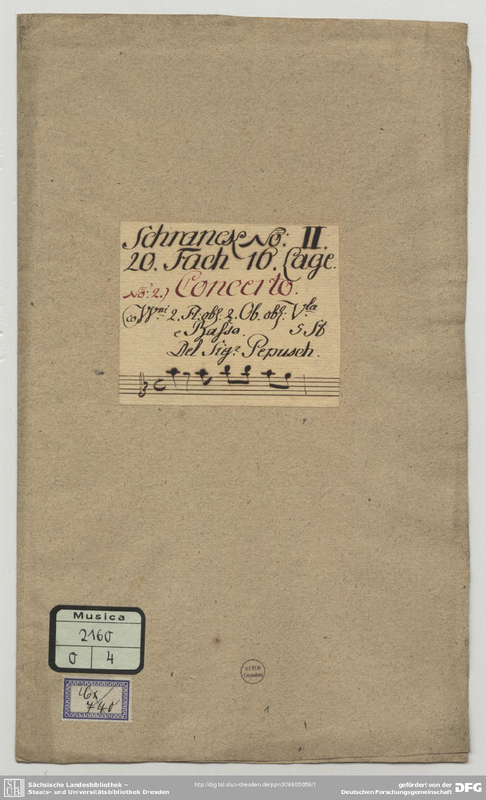 Schranck No: II.
20. Fach 16. Lage.
No: 2.) Concerto.
co VVni 2. Fl. obl. 2. Ob. obl. Vla
e Basso. 5 St
Del Sigr. Pepusch.
Musica
2160
O 4
Cx
740
Sächsische Landesbibliothek –
Staats- und Universitätsbibliothek Dresden
gefördert von der
Deutschen Forschungsgemeinschaft DFG